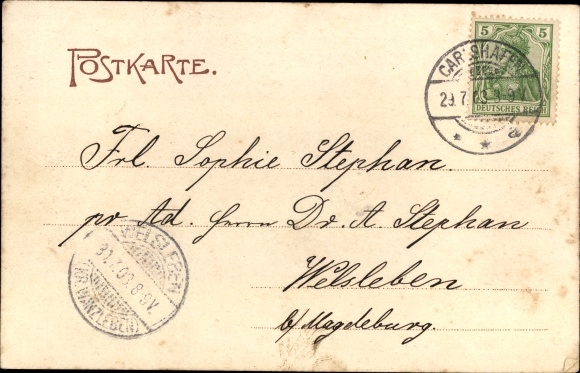 POSTKARTE.
5 5
DEUTSCHES REICH
CARLSHAFEN
29.7.03. 8-9V.
* * a
Frl. Sophie Stephan.
pr Ad. Herrn Dr. A. Stephan
Welsleben
b/Magdeburg.
WELSLEBEN
31.7.03. 8-9V.
(KR WANZLEBEN)